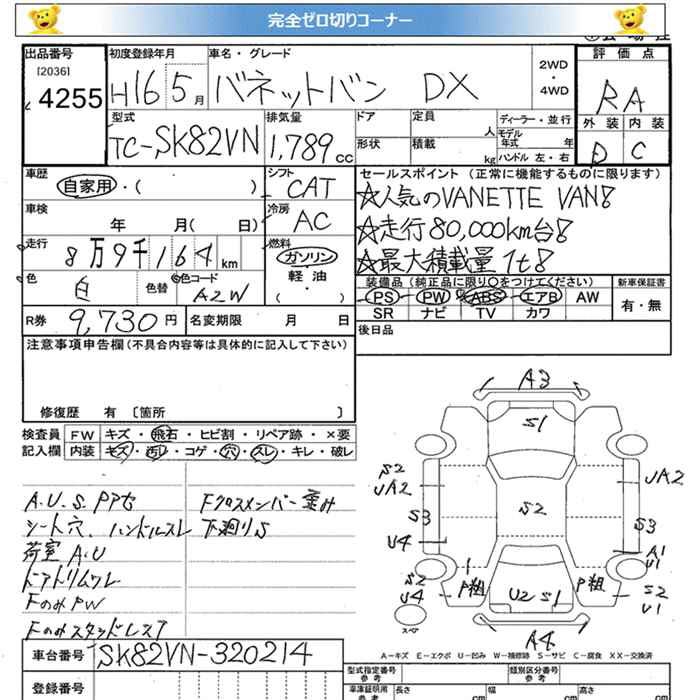 完全ゼロ切りコーナー
出品番号 初度登録年月 車名・グレード 2WD・4WD 評価点
[2036]
4255 H16 5月 バネットバン DX RA
型式 排気量 ドア 定員 人 ディーラー・並行 外装 内装
TC-SK82VN 1,789cc 形状 積載 kg モデル年式 年 ハンドル 左・右 D C
車歴 シフト セールスポイント (正常に機能するものに限ります)
自家用・( ) CAT ☆人気のVANETTE VAN!
車検 冷房 ☆走行80,000km台!
年 月( 日) AC ☆最大積載量1t!
走行 8万9千164km 燃料 ガソリン 軽油 ( )
色 白 色替 色コード A2W
装備品 (純正品に限り○をつけてください) 新車保証書
PS PW ABS エアB AW 有・無
SR ナビ TV カワ
R券 9,730円 名変期限 月 日 後日品
注意事項申告欄(不具合内容等は具体的に記入して下さい)
修復歴 有 〔箇所 〕
検査員 FW キズ・飛石・ヒビ割・リペア跡・×要
記入欄 内装 キズ・汚レ・コゲ・穴・スレ・キレ・破レ
A.U.S.Pアセ Fクロスメンバー歪み
シート穴、ハンドルスレ 下廻りS
荷室A.U
ドアトリムワレ
FのみPW
Fのみスタッドレス7
A3
S1
S2 UA2 UA2
S2
S3 S3
U4 A1 U1
S2 U4 P粗 U2 S1 P粗 S2 U1
スペア
A4
A-キズ E-エクボ U-凹み W-補修跡 S-サビ C-腐食 XX-交換済
車台番号 SK82VN-320214
登録番号
型式指定番号 参考 類別区分番号 参考
車庫証明用 参考 長さ cm 幅 cm 高さ cm